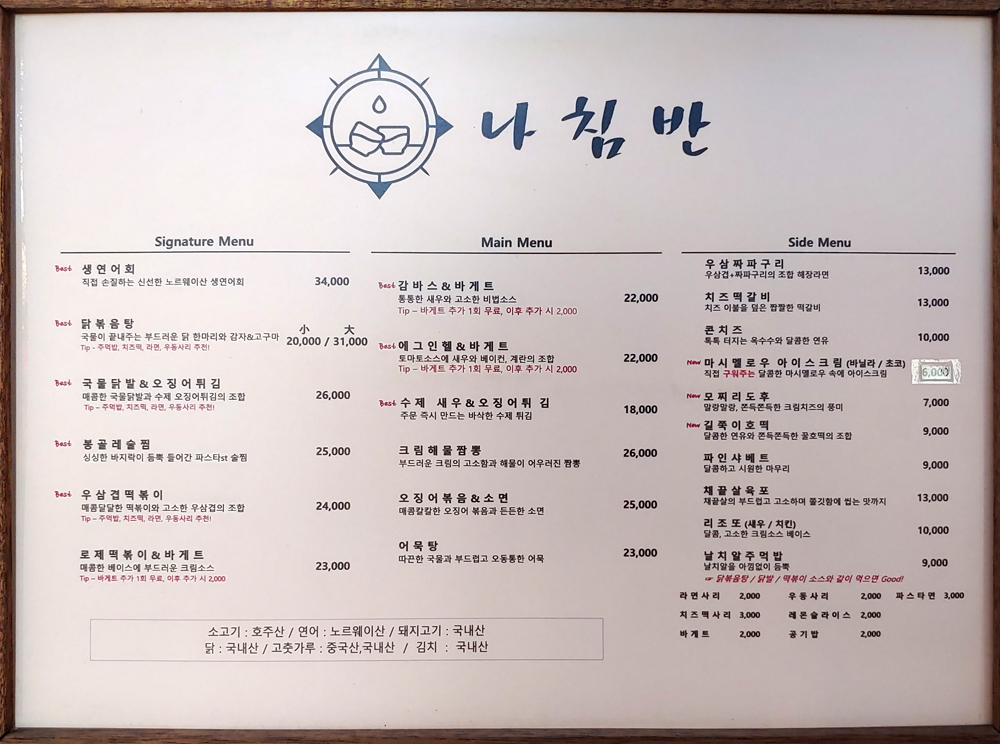 나침반
Signature Menu
Best 생연어회
직접 손질하는 신선한 노르웨이산 생연어회 34,000
Best 닭볶음탕 小 大
국물이 끝내주는 부드러운 닭 한마리와 감자&고구마 20,000 / 31,000
Tip - 주먹밥, 치즈떡, 라면, 우동사리 추천!
Best 국물닭발&오징어튀김
매콤한 국물닭발과 수제 오징어튀김의 조합 26,000
Tip – 주먹밥, 치즈떡, 라면, 우동사리 추천!
Best 봉골레술찜
싱싱한 바지락이 듬뿍 들어간 파스타st 술찜 25,000
Best 우삼겹떡볶이
매콤달달한 떡볶이와 고소한 우삼겹의 조합 24,000
Tip – 주먹밥, 치즈떡, 라면, 우동사리 추천!
로제떡볶이&바게트
매콤한 베이스에 부드러운 크림소스 23,000
Tip – 바게트 추가 1회 무료, 이후 추가 시 2,000
Main Menu
Best 감바스&바게트
통통한 새우와 고소한 비법소스 22,000
Tip – 바게트 추가 1회 무료, 이후 추가 시 2,000
Best 에그인헬&바게트
토마토소스에 새우와 베이컨, 계란의 조합 22,000
Tip – 바게트 추가 1회 무료, 이후 추가 시 2,000
Best 수제 새우&오징어튀김
주문 즉시 만드는 바삭한 수제 튀김 18,000
크림해물짬뽕 26,000
부드러운 크림의 고소함과 해물이 어우러진 짬뽕
오징어볶음&소면
매콤칼칼한 오징어 볶음과 든든한 소면 25,000
어묵탕
따끈한 국물과 부드럽고 오동통한 어묵 23,000
Side Menu
우삼짜파구리
우삼겹+짜파구리의 조합 해장라면 13,000
치즈떡갈비
치즈 이불을 덮은 짭짤한 떡갈비 13,000
콘치즈
톡톡 터지는 옥수수와 달콤한 연유 10,000
New 마시멜로우 아이스크림 (바닐라 / 초코)
직접 구워주는 달콤한 마시멜로우 속에 아이스크림 6,000
New 모찌리도후
말랑말랑, 쫀득쫀득한 크림치즈의 풍미 7,000
New 길쭉이호떡
달콤한 연유와 쫀득쫀득한 꿀호떡의 조합 9,000
파인샤베트
달콤하고 시원한 마무리 9,000
채끝살육포
채끝살의 부드럽고 고소하며 쫄깃함에 씹는 맛까지 13,000
리조또 (새우 / 치킨)
달콤, 고소한 크림소스 베이스 10,000
날치알주먹밥
날치알을 아낌없이 듬뿍 9,000
☞ 닭볶음탕 / 닭발 / 떡볶이 소스와 같이 먹으면 Good!
라면사리 2,000 우동사리 2,000 파스타면 3,000
치즈떡사리 3,000 레몬슬라이스 2,000
바게트 2,000 공기밥 2,000
소고기 : 호주산 / 연어 : 노르웨이산 / 돼지고기 : 국내산
닭 : 국내산 / 고춧가루 : 중국산,국내산 / 김치 : 국내산